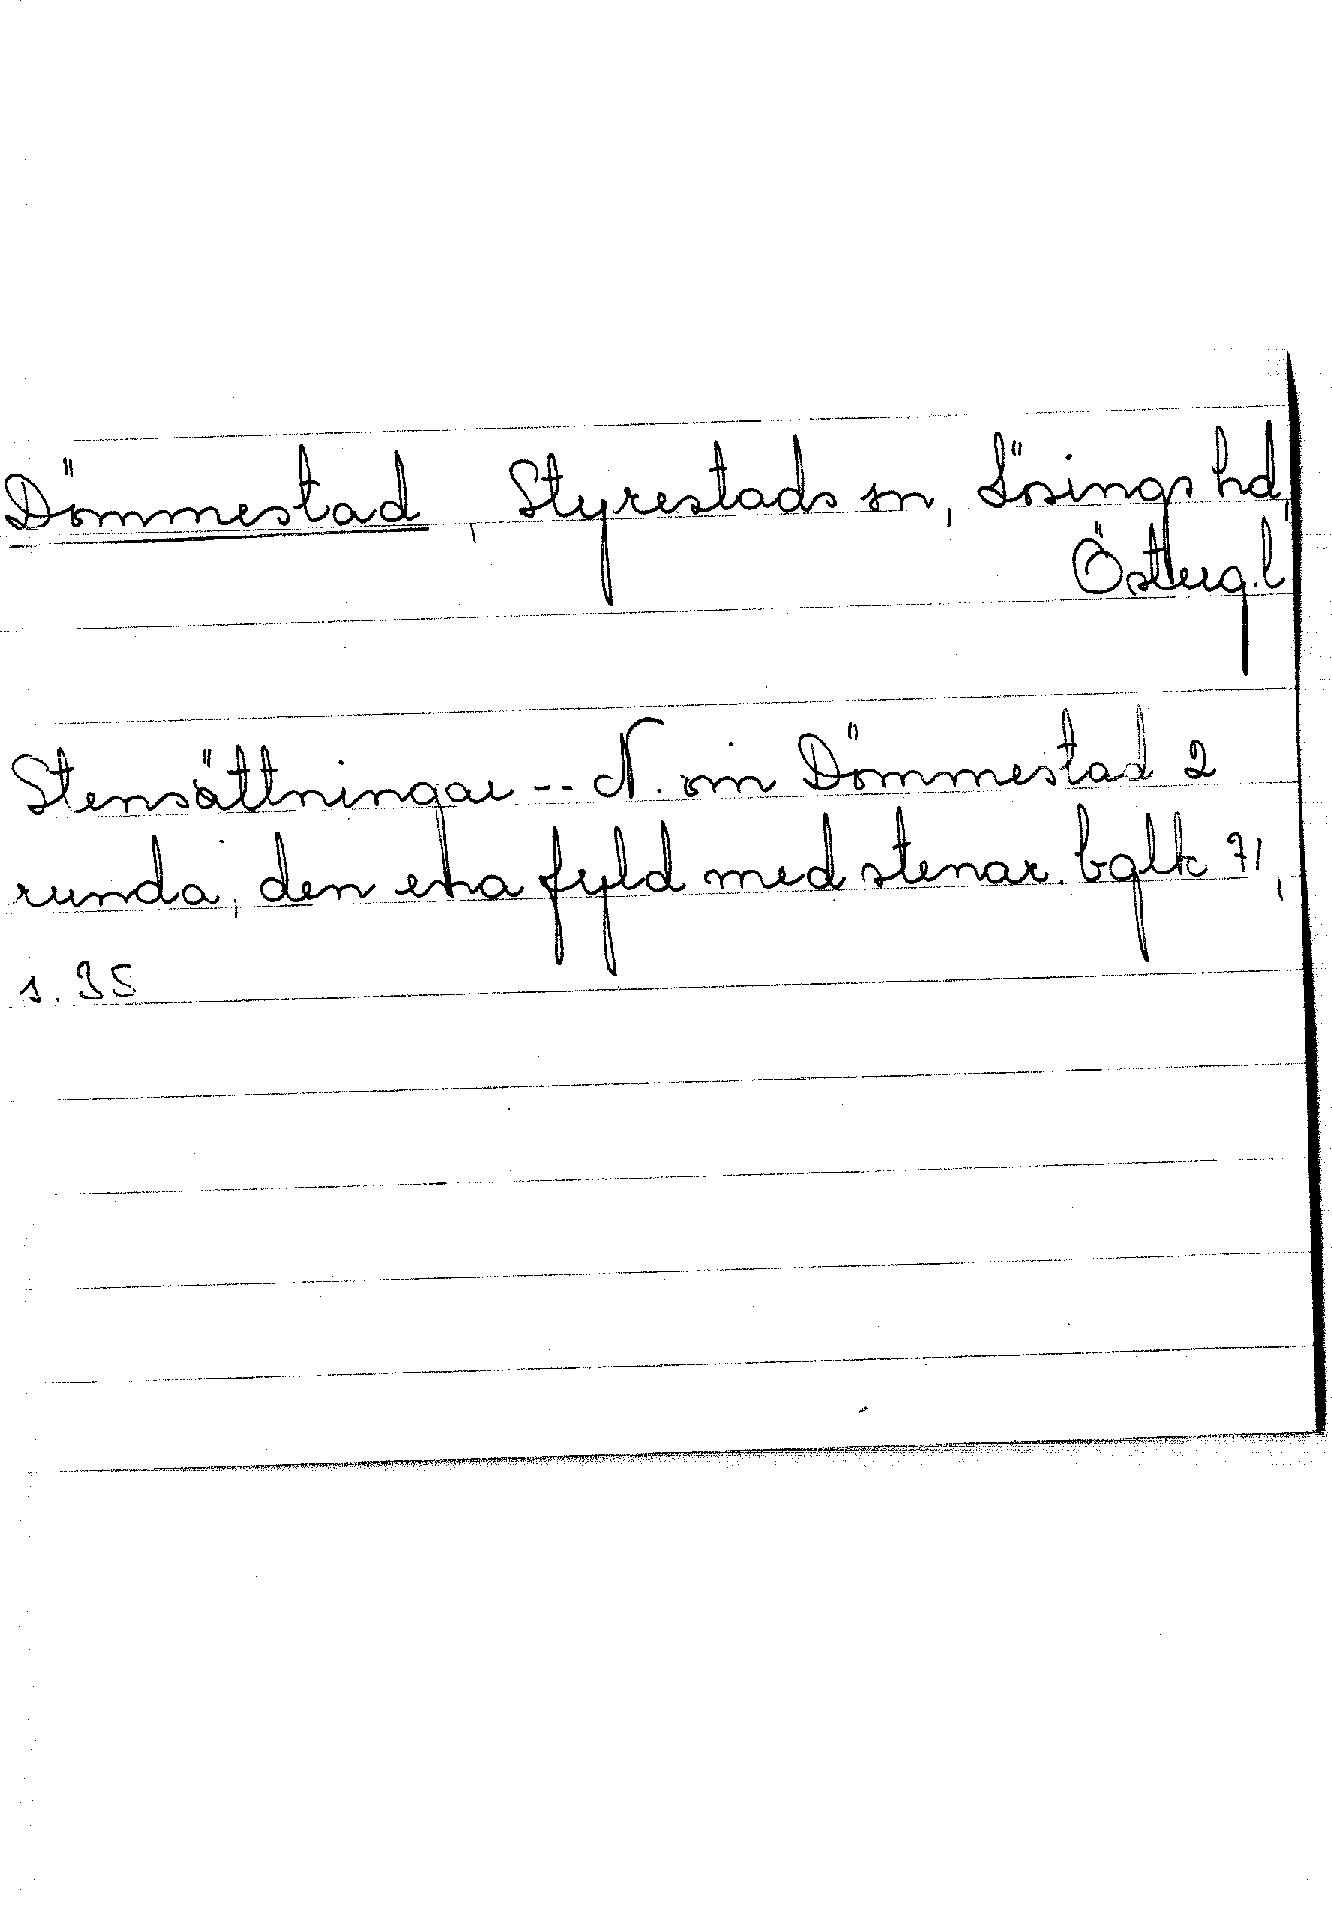 Dömmestad, Styrestads sn, Lösings hd,
Österg.l
Stensättningar -- N. om Dömmestad 2
runda, den ena fyld med stenar. bglk 71,
s. 35